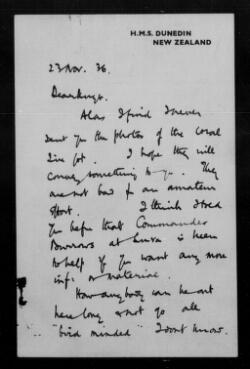 H.M.S. DUNEDIN
NEW ZEALAND
23 Nov. 36.
Dear
Alas I find I never
sent you the photos of the coral
I hope they will
convey something to you. They
are not bad for an amateur
effort. I think I told
you before that Commander
Burrows at Suva is keen
to help if you want any more
info or material.
How anybody can be out
here long & not go all
"bird minded" I dont know.